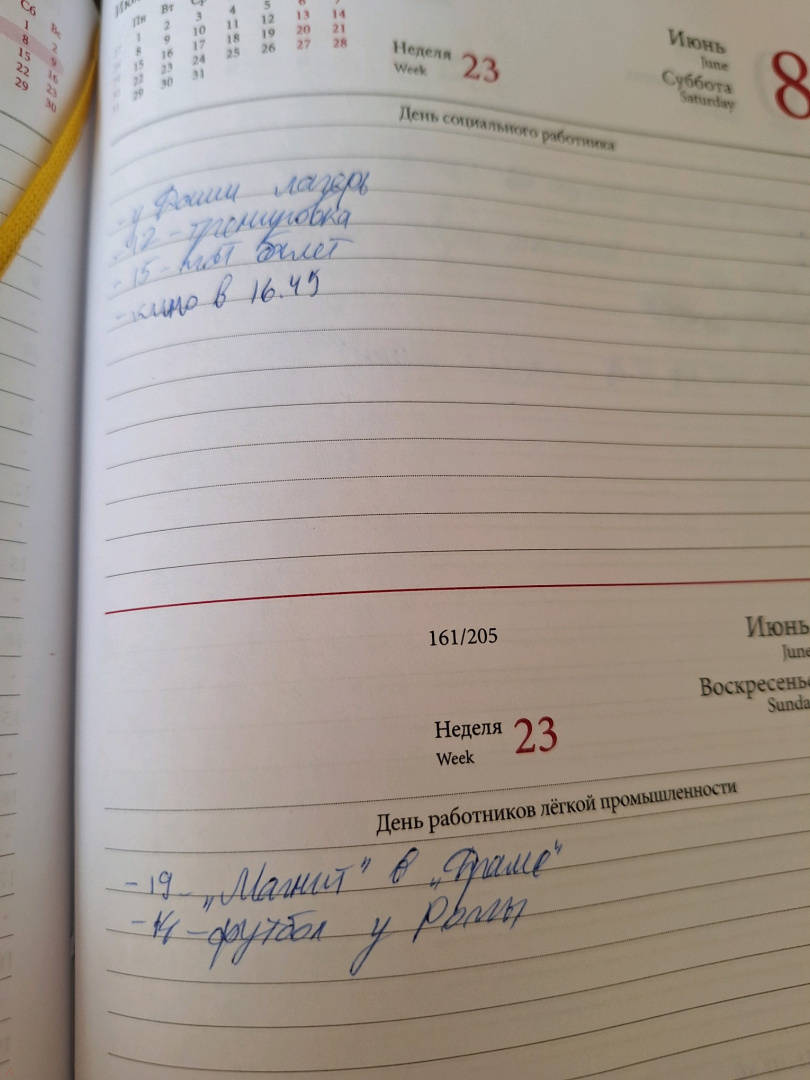 Сб
1 2
8 9
15 16
22 23
29 30
Пн Вт
1 2 3 4 5 6 7
8 9 10 11 12 13 14
15 16 17 18 19 20 21
22 23 24 25 26 27 28
29 30 31
Неделя
Week 23
Июнь
June
Суббота
Saturday
8
День социального работника
- у Фаши лагерь
- 12 - тренировка
- 15 - билет
- кино в 16.45
161/205
Июнь
June
Воскресенье
Sunda
Неделя
Week 23
День работников лёгкой промышленности
- 19 - „Магнит" в „Драме"
- 14 - футбол у Ромы